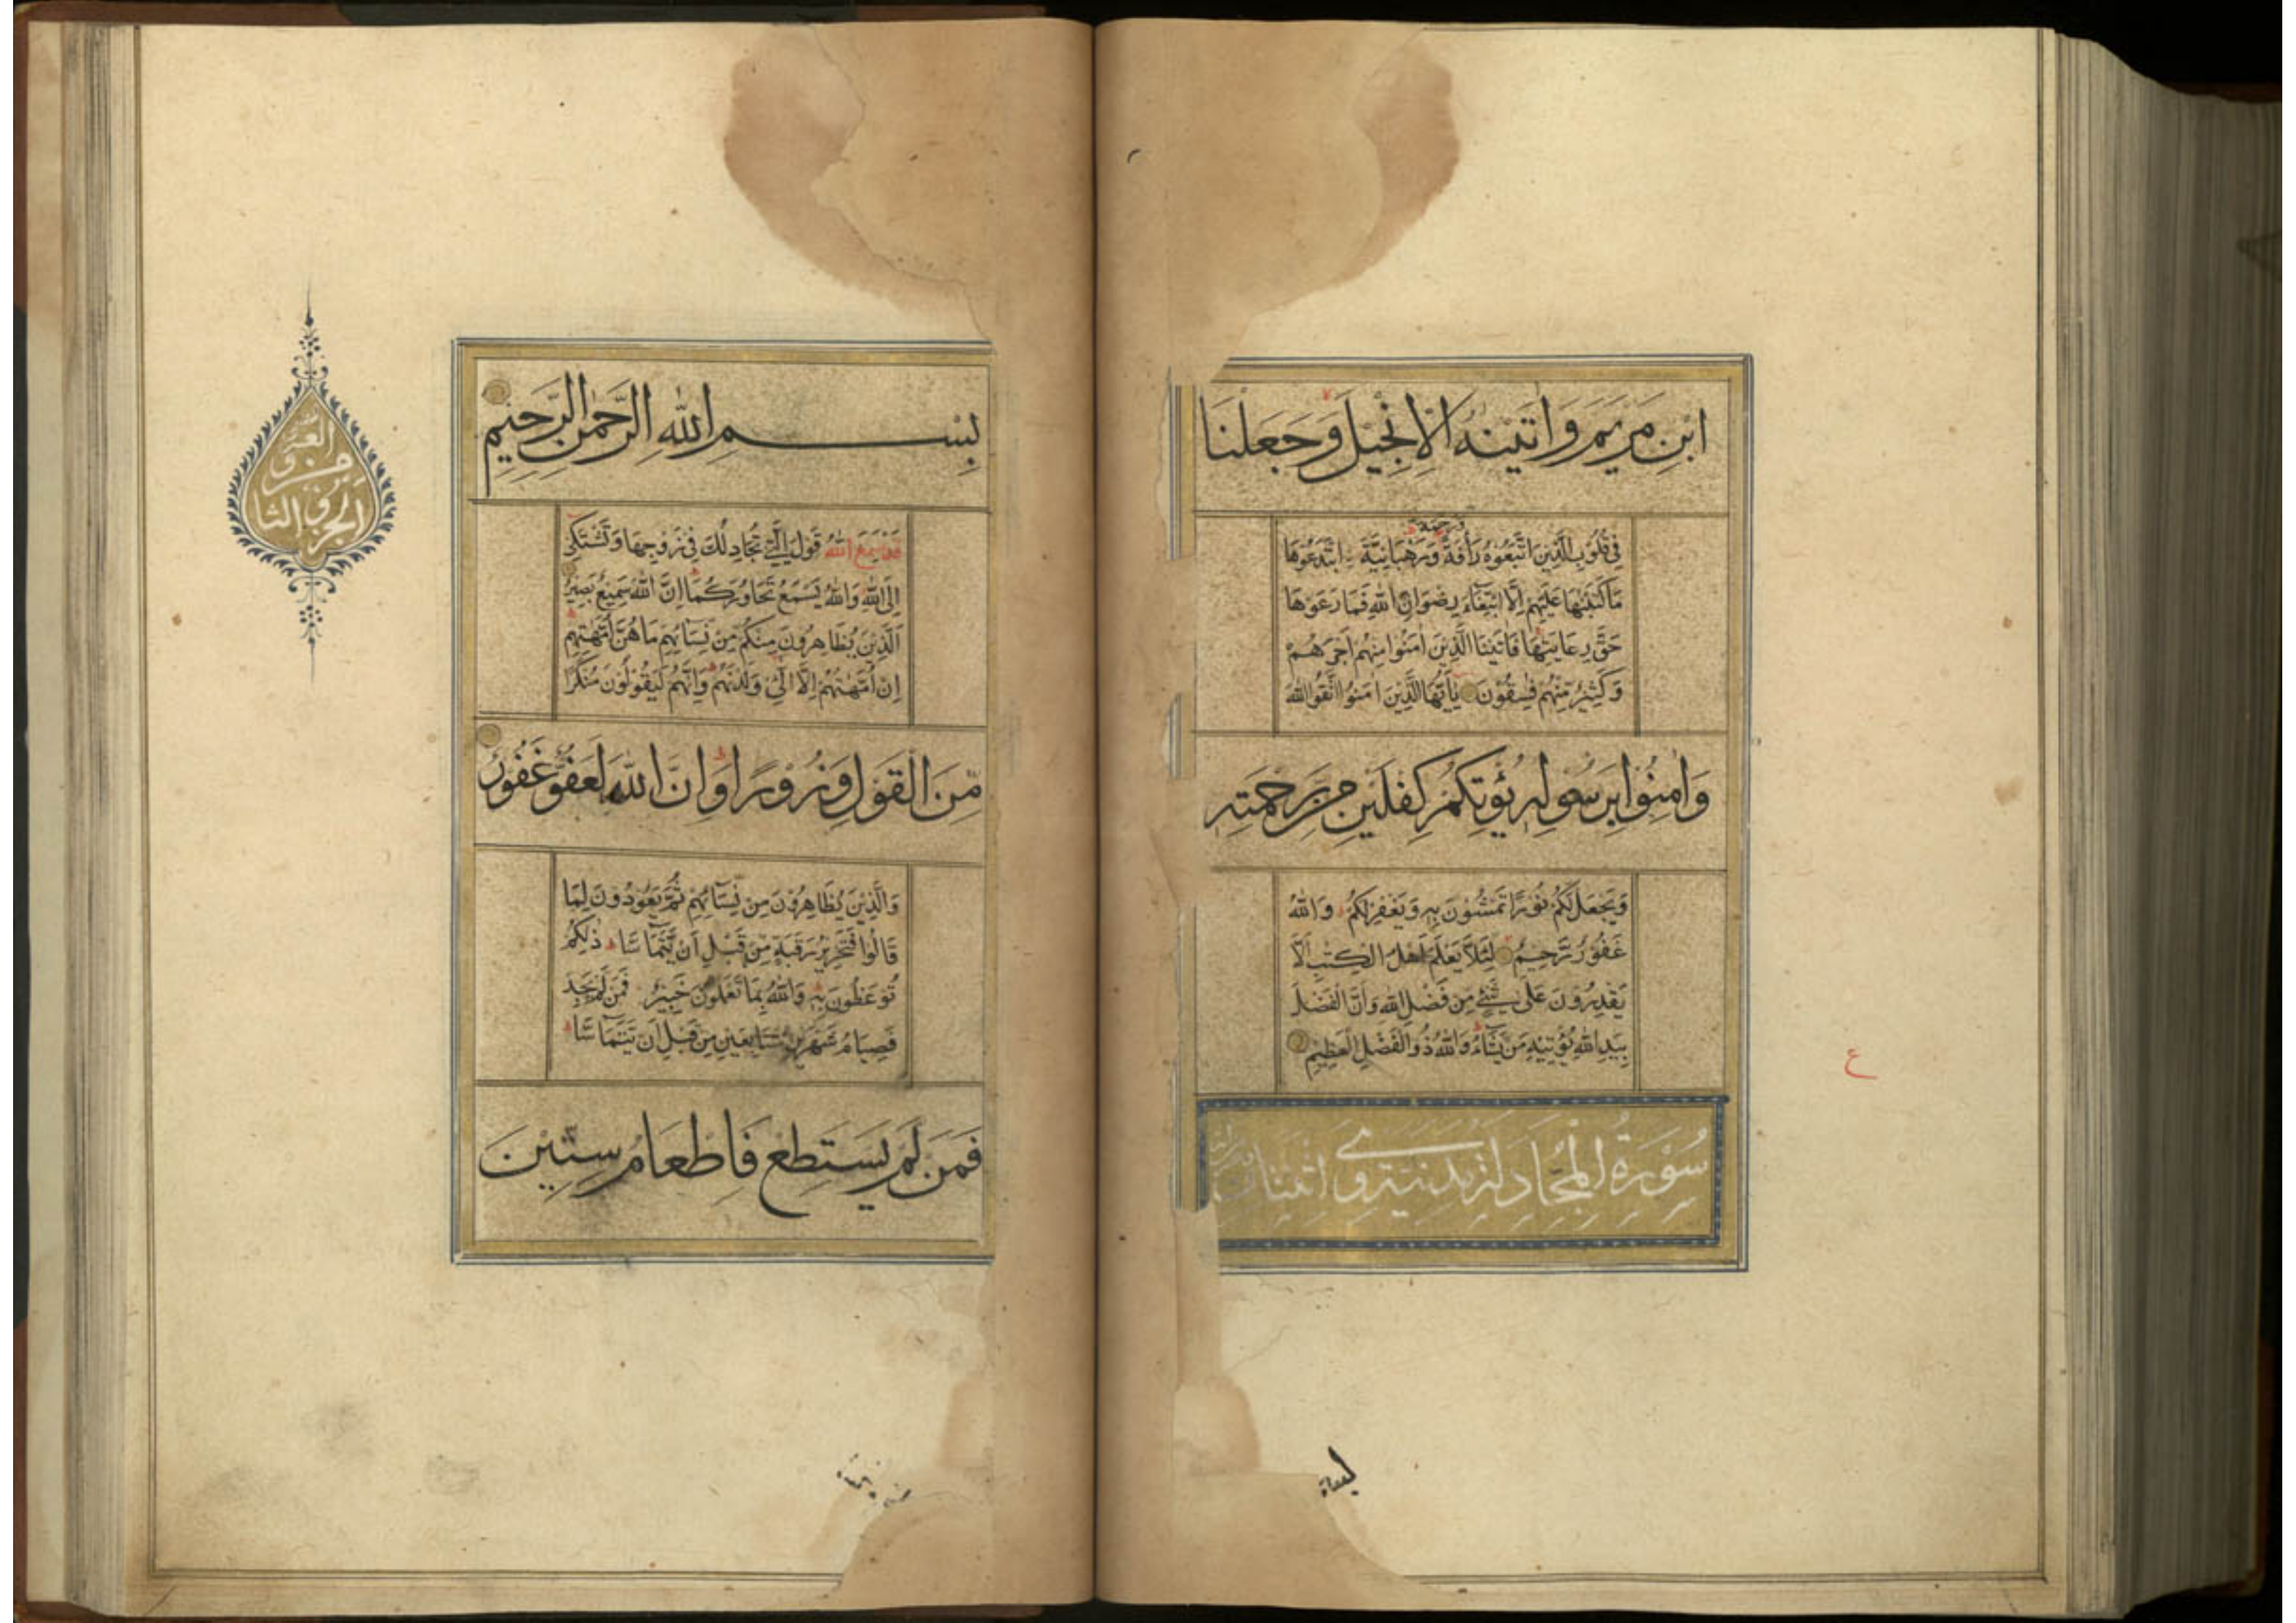 ابْنِ مَرْيَمَ وَاٰتَيْنٰهُ الْاِنْجِيْلَ وَجَعَلْنَا
فِيْ قُلُوْبِ الَّذِيْنَ اتَّبَعُوْهُ رَأْفَةً وَّرَحْمَةً وَرَهْبَانِيَّةَ ابْتَدَعُوْهَا
مَا كَتَبْنٰهَا عَلَيْهِمْ اِلَّا ابْتِغَاءَ رِضْوَانِ اللهِ فَمَا رَعَوْهَا
حَقَّ رِعَايَتِهَا فَاٰتَيْنَا الَّذِيْنَ اٰمَنُوْا مِنْهُمْ اَجْرَهُمْ
وَكَثِيْرٌ مِّنْهُمْ فٰسِقُوْنَ يٰاَيُّهَا الَّذِيْنَ اٰمَنُوا اتَّقُوا اللهَ
وَاٰمِنُوْا بِرَسُوْلِهٖ يُؤْتِكُمْ كِفْلَيْنِ مِنْ رَّحْمَتِهٖ
وَيَجْعَلْ لَكُمْ نُوْرًا تَمْشُوْنَ بِهٖ وَيَغْفِرْ لَكُمْ وَاللهُ
غَفُوْرٌ رَّحِيْمٌ لِئَلَّا يَعْلَمَ اَهْلُ الْكِتٰبِ اَلَّا
يَقْدِرُوْنَ عَلٰى شَيْءٍ مِنْ فَضْلِ اللهِ وَاَنَّ الْفَضْلَ
بِيَدِ اللهِ يُؤْتِيْهِ مَنْ يَّشَاءُ وَاللهُ ذُو الْفَضْلِ الْعَظِيْمِ
سُوْرَةُ الْمُجَادَلَةِ مَدَنِيَّةٌ وَهِيَ اثْنَتَانِ
ع
بِسْمِ اللهِ الرَّحْمٰنِ الرَّحِيْمِ
قَدْ سَمِعَ اللهُ قَوْلَ الَّتِيْ تُجَادِلُكَ فِيْ زَوْجِهَا وَتَشْتَكِيْ
اِلَى اللهِ وَاللهُ يَسْمَعُ تَحَاوُرَكُمَا اِنَّ اللهَ سَمِيْعٌ بَصِيْرٌ
اَلَّذِيْنَ يُظَاهِرُوْنَ مِنْكُمْ مِّنْ نِّسَائِهِمْ مَا هُنَّ اُمَّهٰتِهِمْ
اِنْ اُمَّهٰتُهُمْ اِلَّا الّٰئِيْ وَلَدْنَهُمْ وَاِنَّهُمْ لَيَقُوْلُوْنَ مُنْكَرًا
مِّنَ الْقَوْلِ وَزُوْرًا وَاِنَّ اللهَ لَعَفُوٌّ غَفُوْرٌ
وَالَّذِيْنَ يُظَاهِرُوْنَ مِنْ نِّسَائِهِمْ ثُمَّ يَعُوْدُوْنَ لِمَا
قَالُوْا فَتَحْرِيْرُ رَقَبَةٍ مِّنْ قَبْلِ اَنْ يَّتَمَاسَّا ذٰلِكُمْ
تُوْعَظُوْنَ بِهٖ وَاللهُ بِمَا تَعْمَلُوْنَ خَبِيْرٌ فَمَنْ لَّمْ يَجِدْ
فَصِيَامُ شَهْرَيْنِ مُتَتَابِعَيْنِ مِنْ قَبْلِ اَنْ يَتَمَاسَّا
فَمَنْ لَّمْ يَسْتَطِعْ فَاِطْعَامُ سِتِّيْنَ
الجزو الثا
من و
العشر